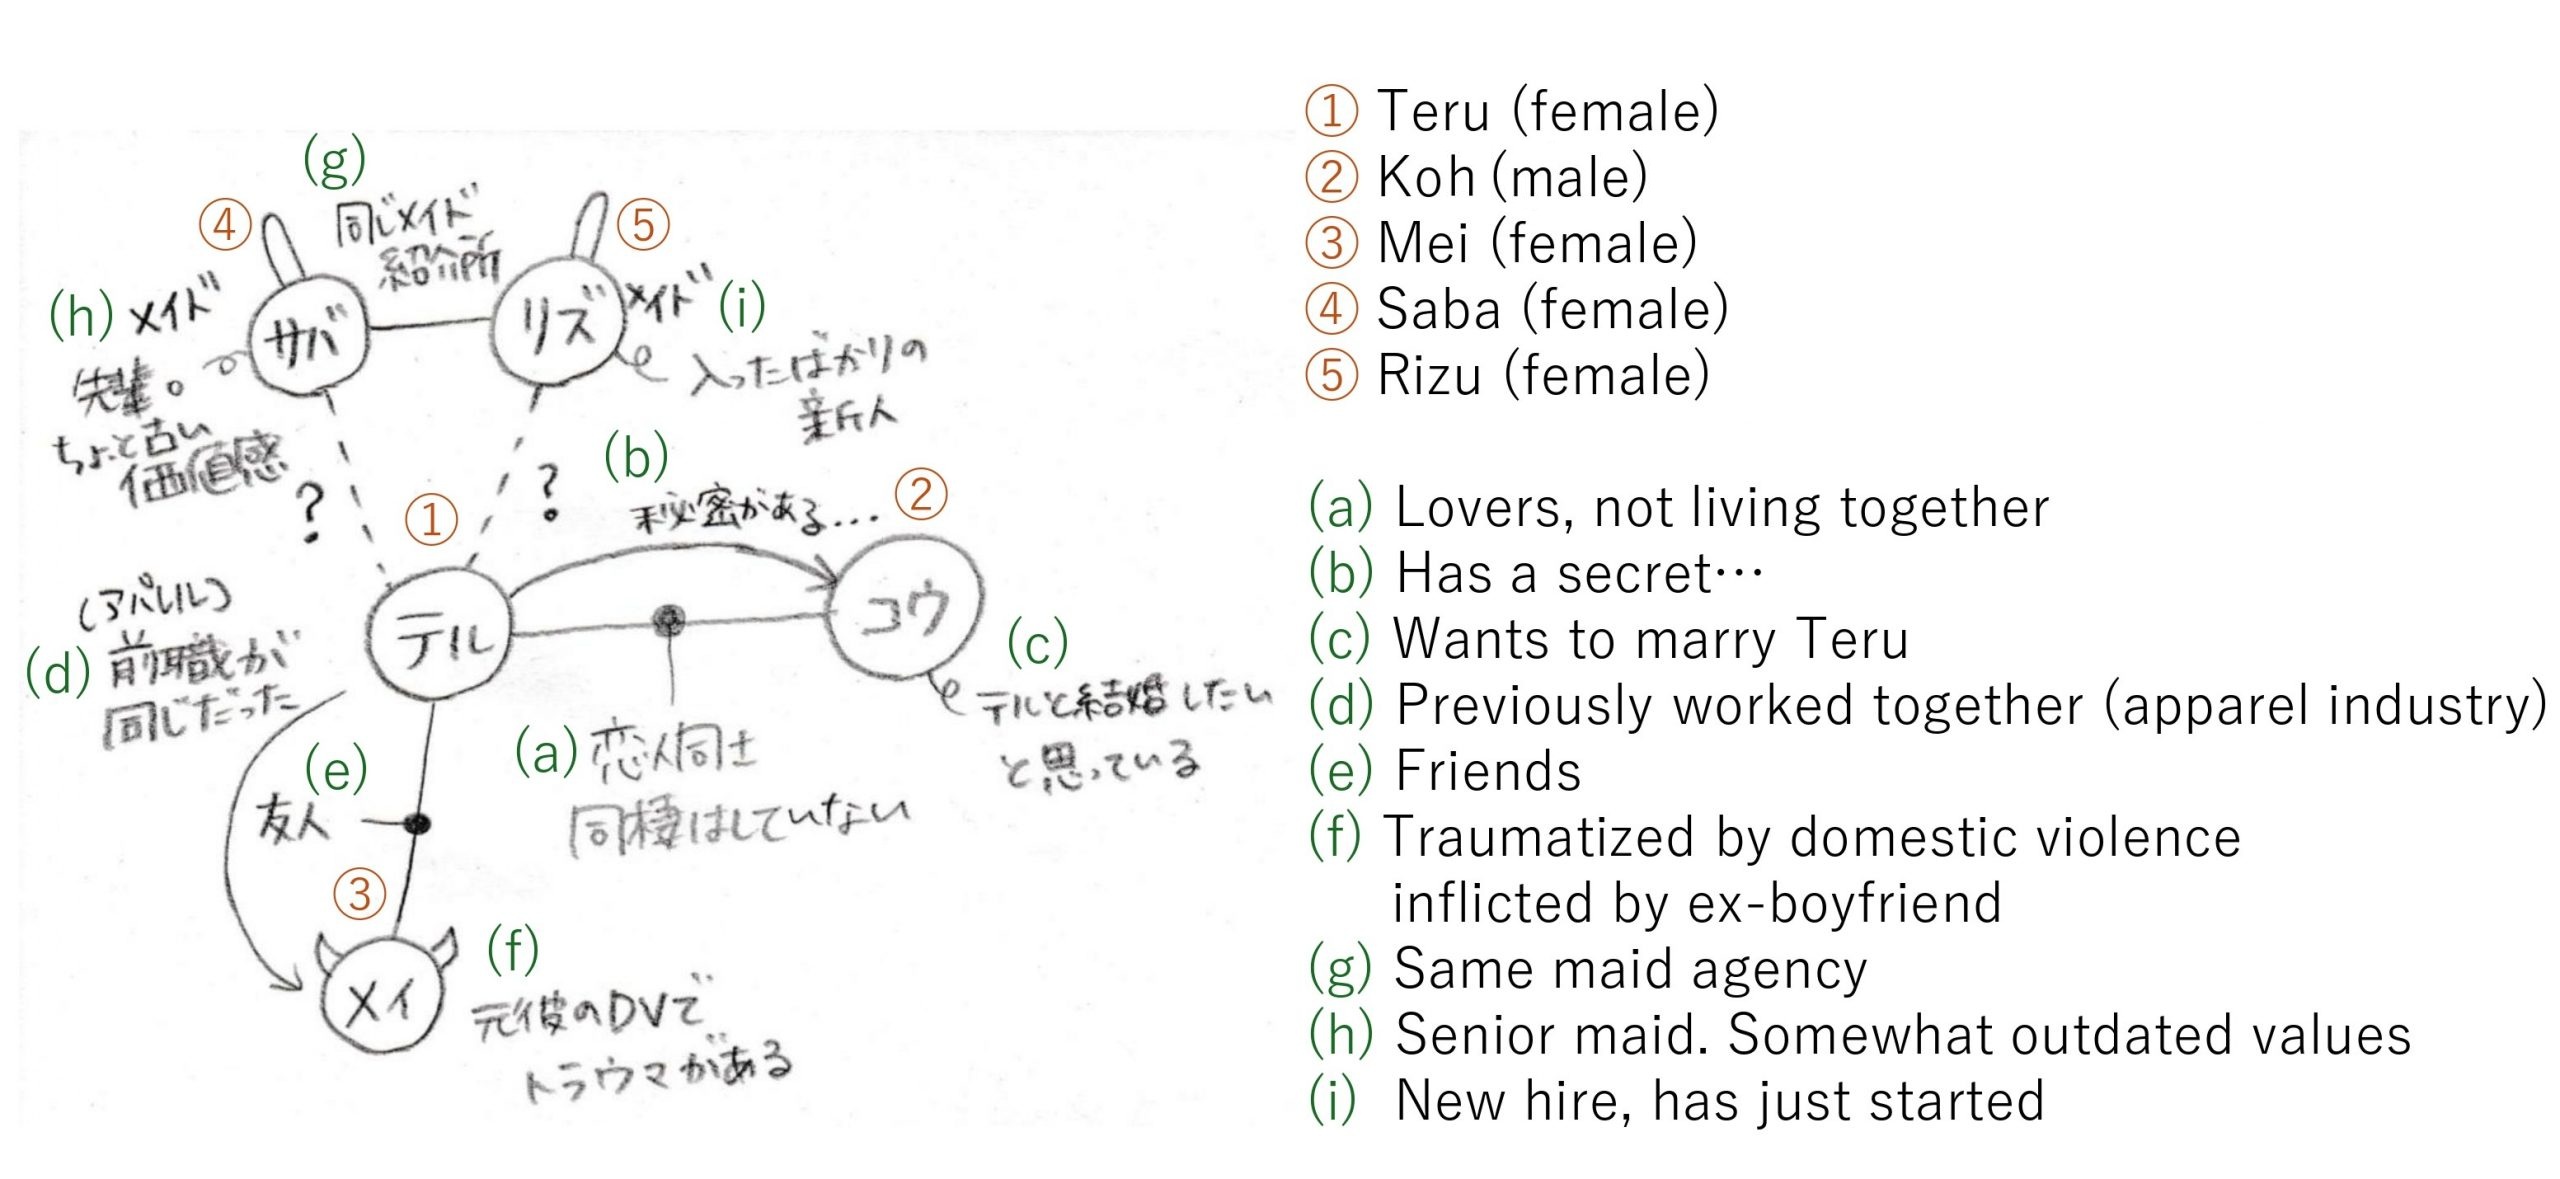 (g)
④
同じメイド
紹介所
⑤
(h) メイド
サバ
リズ
メイド (i)
先輩。
ちょっと古い
価値感
入ったばかりの
新人
(b)
?
?
①
秘密がある...
②
(アパレル)
(d) 前職が
同じだった
テル
コウ
(c)
テルと結婚したい
と思っている
(e)
友人
(a) 恋人同士
同棲はしていない
③
メイ
(f)
元彼のDVで
トラウマがある
① Teru (female)
② Koh (male)
③ Mei (female)
④ Saba (female)
⑤ Rizu (female)
(a) Lovers, not living together
(b) Has a secret…
(c) Wants to marry Teru
(d) Previously worked together (apparel industry)
(e) Friends
(f) Traumatized by domestic violence
inflicted by ex-boyfriend
(g) Same maid agency
(h) Senior maid. Somewhat outdated values
(i) New hire, has just started